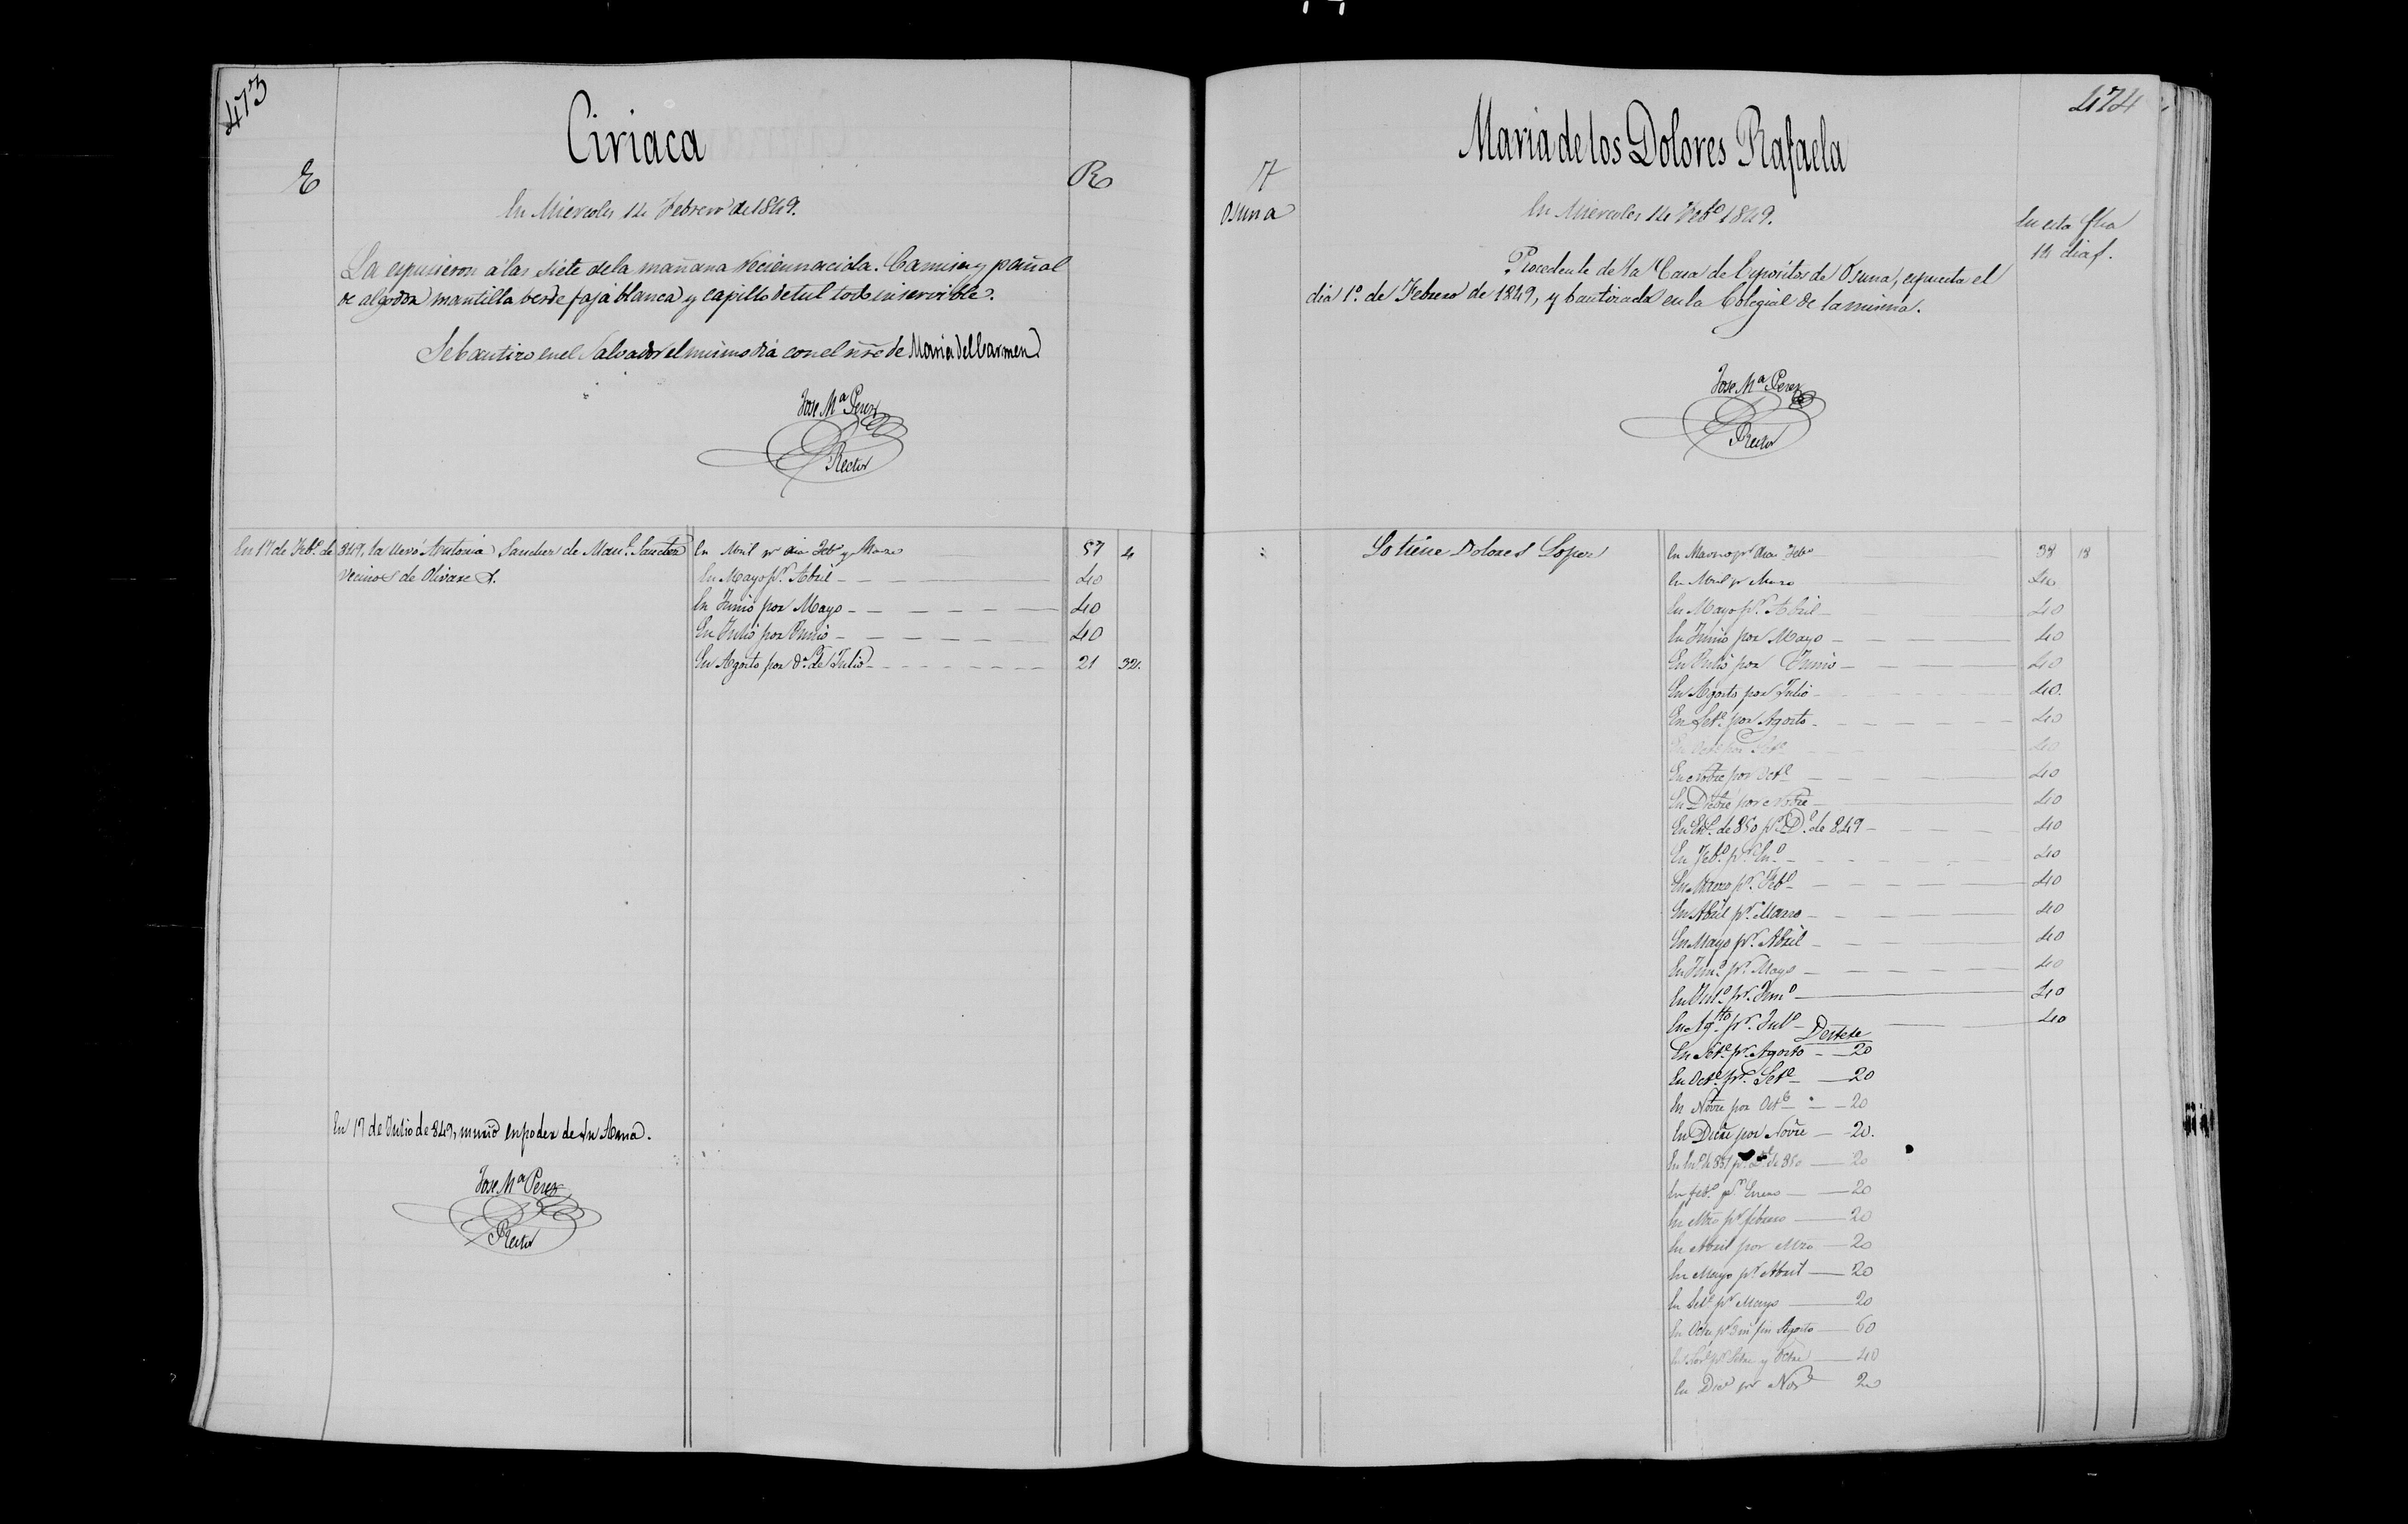 473
Ciriaca
E
R
En Miercoles 14 Febrero de 1849.
La espusieron á las siete de la mañana reciennacida. Camisa y pañal
de algodon mantilla berde faja blanca y capillo de tul todo inservible.
Se bautizo en el Salvador el mismo dia con el nre de Maria del Carmen
Jose Mª Perez
Rector
En 17 de Febº de 849, la llevó Antonia Sanchez de Manl. Sanchez
vecinos de Olivares.
En Abril pr dias Febº y Marzo 57 4
En Mayo pr. Abril 40
En Junio por Mayo 40
En Julio por Junio 40
En Agosto por ds. de Julio 21 32.
En 17 de Julio de 849, murió en poder de su Ama.
Jose Mª Perez
Rector
474
Maria de los Dolores Rafaela
Osuna
En Miercoles 14 Febº 1849.
En esta fha
14 dias.
Procedente de la Casa de Espositos de Osuna, espuesta el
dia 1º. de Febrero de 1849, y bautizada en la Colegial de la misma.
Jose Mª Perez
Rector
Lo tiene Dolores Lopez
En Marzo pr dias Febº 38 18
En Abril pr Marzo 40
En Mayo pr. Abril 40
En Junio por Mayo 40
En Julio por Junio 40
En Agosto por Julio 40.
En Sete. por Agosto 40
En Octe por Sete 40
En Nobre por Octe 40
En Dicbre por Nobre 40
En Enº. de 850 pr. De. de 849 40
En Febº. pr. Enº. 40
En Marzo pr. Febº 40
En Abril pr. Marzo 40
En Mayo pr. Abril 40
En Junº. pr. Mayo 40
En Julº. pr. Junº 40
En Agto. pr. Julº 40
Destete
En Sete. pr. Agosto 20
En Octe. pr. Sete 20
En Novre por Octe 20
En Dicre por Novre 20.
En Enº. de 851 pr. De. de 850 20
En febº. pr. Enero 20
En Mzo pr febrero 20
En Abril por Mzo 20
En Mayo pr. Abril 20
En Sete pr Mayo 20
En Octre pr 3 ms fin Agosto 60
En Nove pr Setre y Octre 40
En Dice por Nove 20